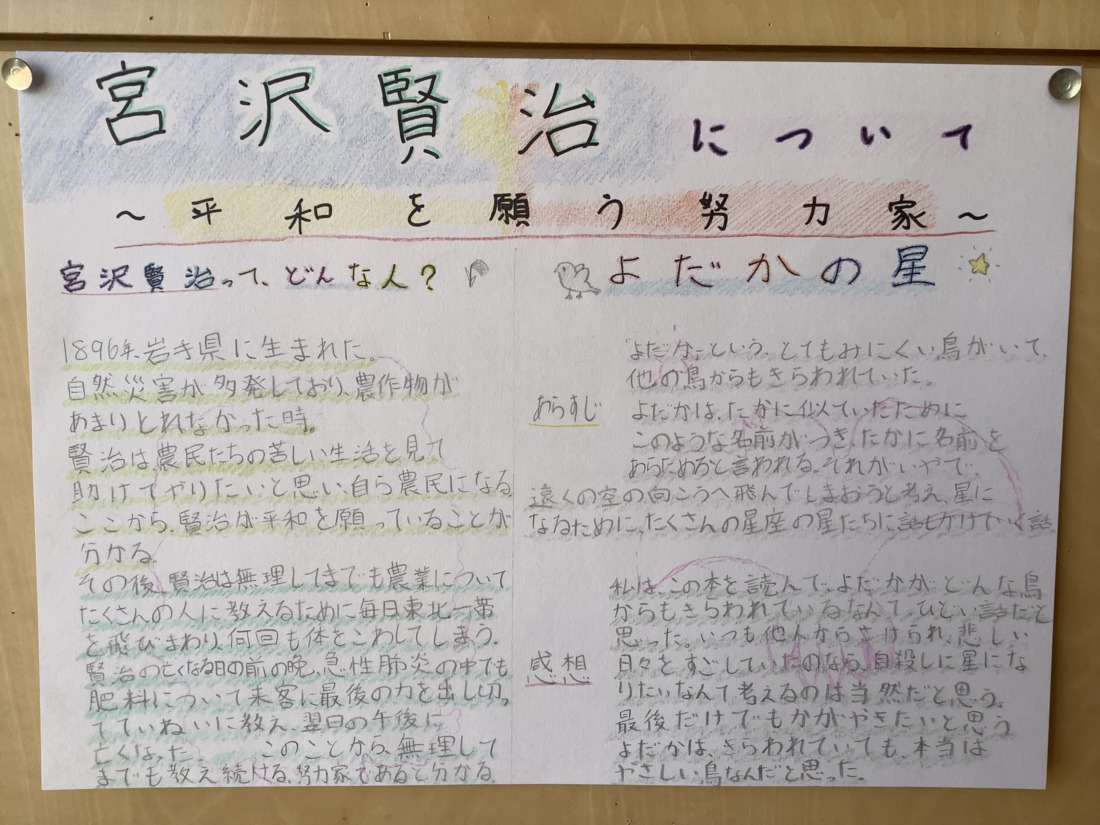 宮沢賢治について
～平和を願う努力家～
宮沢賢治って、どんな人？
1896年、岩手県に生まれた。
自然災害が多発しており、農作物が
あまりとれなかった時。
賢治は、農民たちの苦しい生活を見て
助けてやりたいと思い、自ら農民になる
ここから、賢治が平和を願っていることが
分かる。
その後、賢治は無理してまでも農業について
たくさんの人に教えるために毎日東北一帯
を飛びまわり、何回も体をこわしてしまう。
賢治の亡くなる日の前の晩、急性肺炎の中でも
肥料について来客に最後の力を出し切っ
てていねいに教え、翌日の午後に
亡くなった。 このことから、無理して
までも教え続ける、努力家であると分かる。
よだかの星
あらすじ
よだかという、とてもみにくい鳥がいて、
他の鳥からもきらわれていった。
よだかは、たかに似ていたために
このような名前がつき、たかに名前を
あらためろと言われる。それがいやで
遠くの空の向こうへ飛んでしまおうと考え、星に
なるために、たくさんの星座の星たちに話しかけていく話
感想
私は、この本を読んで、よだかがどんな鳥
からもきらわれているなんて、ひどい話だと
思った。いつも他人からさけられ、悲しい
日々をすごしていたのなら、自殺しに星にな
りたいなんて考えるのは当然だと思う。
最後だけでもかがやきたいと思う
よだかは、きらわれていても、本当は
やさしい鳥なんだと思った。